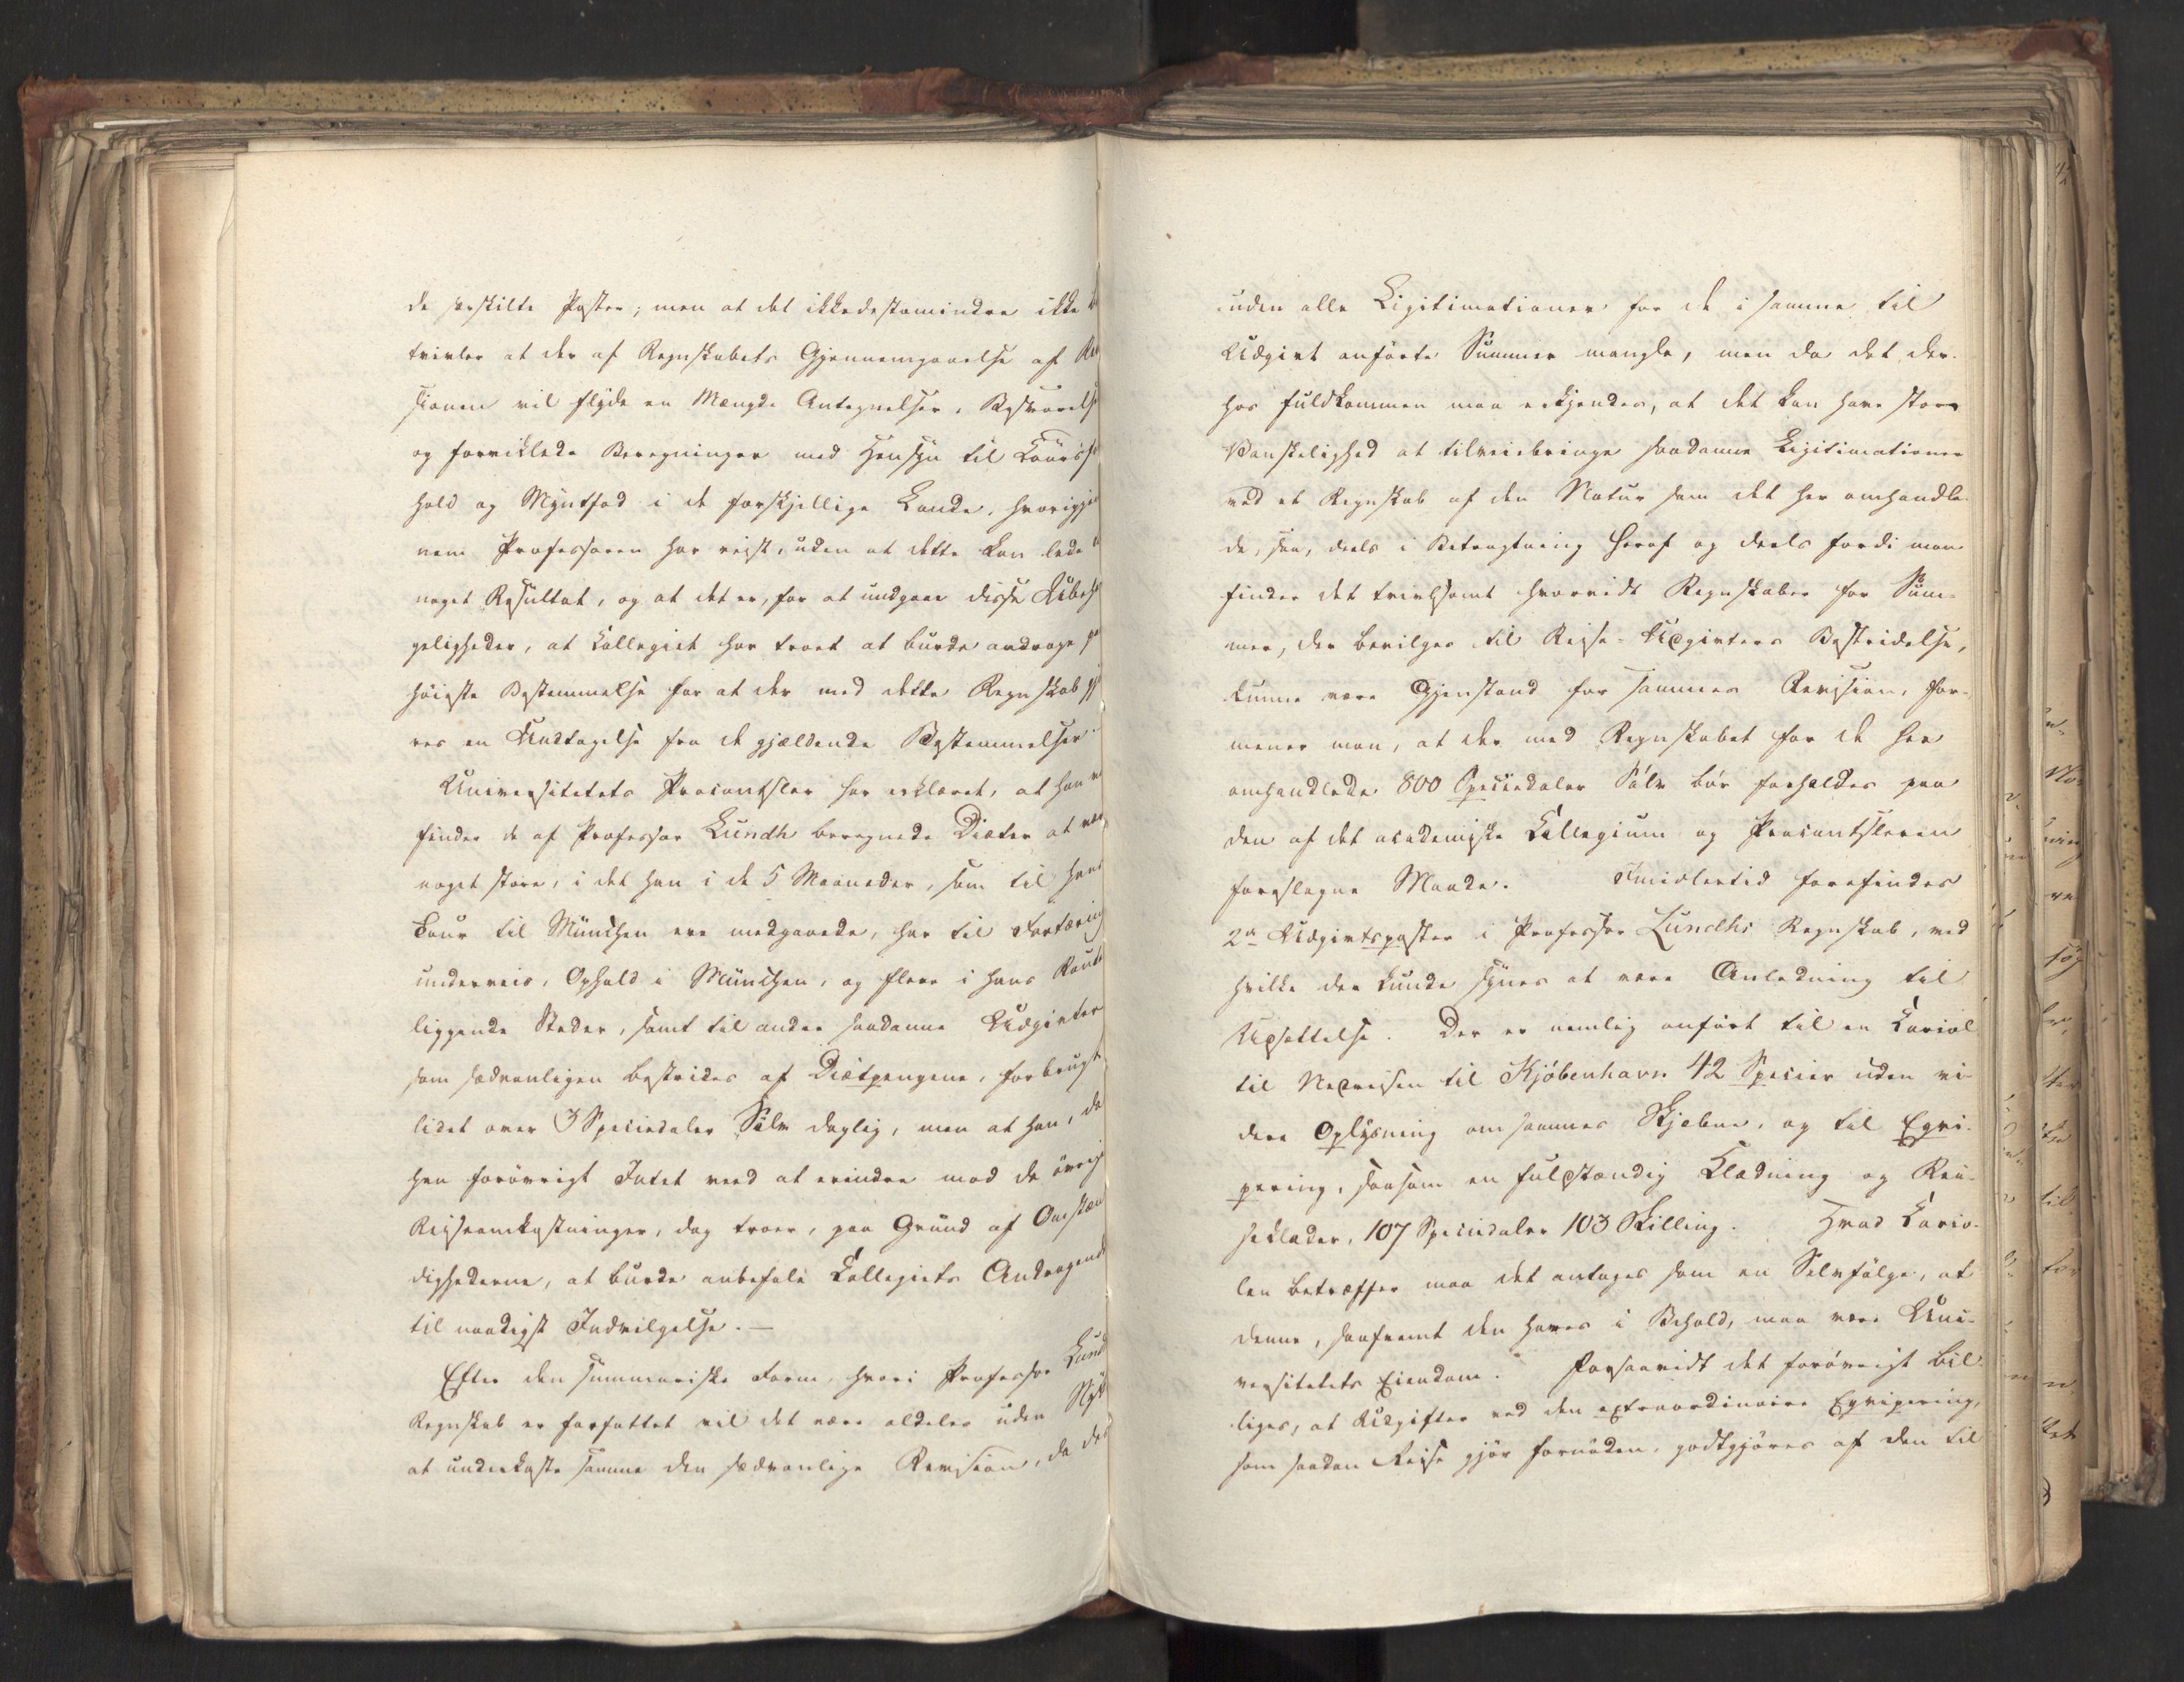 de særskilte Poster; men at det ikkedestomindre ikke
tvivler at der af Regnskabets Gjennemgaaelse af Re
sionen vil flyde en Mængde Antegnelser, Besvarelse
og forviklede Beregninger med Hensyn til Coursfor
hold og Myntfod i de forskjellige Lande, hvorigjen
nem Professoren har reist, uden at dette kan lede
noget Resultat, og at det er, for at undgaae disse Ube
geligheder, at Collegiet har troet at burde andrage
høieste Bestemmelse for at der med dette Regnskab gjö
res en Undtagelse fra de gjældende Bestemmelser.
Universitetets Procantsler har erklæret, at han
finder de af Professor Lundh beregnede Diæter at være
noget store, i det han i de 5 Maaneder, som til hans
Tour til München ere medgaaede, har til Fortæring
underveis, Ophold i München, og flere i hans Route
liggende Steder, samt til andre saadanne Udgivter
som sædvanligen bestrides af Diætpengene, forbrugt
lidet over 3 Speciedaler Sölv daglig, men at han, da
han forövrigt Intet veed at erindre mod de övrige
Reiseomkostninger, dog troer, paa Grund af Omstæn
dighederne, at burde anbefale Collegiets Andragende
til naadigst Indvilgelse. —
Efter den summariske Form, hvori Professor Lund
Regnskab er forfattet vil det være aldeles uden Nytte
at underkaste samme den sædvanlige Revision, da det
uden alle Ligitimationer for de i samme til
Udgivt anförte Summer mangle, men da det der-
hos fuldkommen maa erkjendes, at det kan have store
Vanskelighed at tilveiebringe saadanne Ligitimationer
ved et Regnskab af den Natur som det her omhandle-
de, saa, deels i Betragtning heraf og deels fordi man
finder det tvivlsomt hvorvidt Regnskaber for Sum-
mer, der bevilges til Reise-Udgivters Bestridelse,
kunne være Gjenstand for sammes Revision, for-
mener man, at der med Regnskabet for de her
omhandlede 800 Speciedaler Sölv bör forholdes paa
den af det academiske Collegium og Procantsleren
foreslagne Maade. Imidlertid forefindes
2de Udgivtsposter i Professor Lundhs Regnskab, ved
hvilke der kunde synes at være Anledning til
Udsættelse. Der er nemlig anfört til en Cariol
til Nedreisen til Kjöbenhavn 42 Specier uden vi-
dere Oplysning om sammes Skjebne, og til Eqvi-
pering, saasom en fulstændig Klædning og Rei-
seklæder, 107 Speciedaler 103 Skilling. Hvad Cario-
len betræffer maa det antages som en Selvfölge, at
denne, saafremt den haves i Behold, maa være Uni-
versitetets Eiendom. Forsaavidt det forövrigt bil-
liges, at Udgifter ved den extraordinaire Eqvipering,
som saadan Reise gjör fornöden, godtgjöres af den til